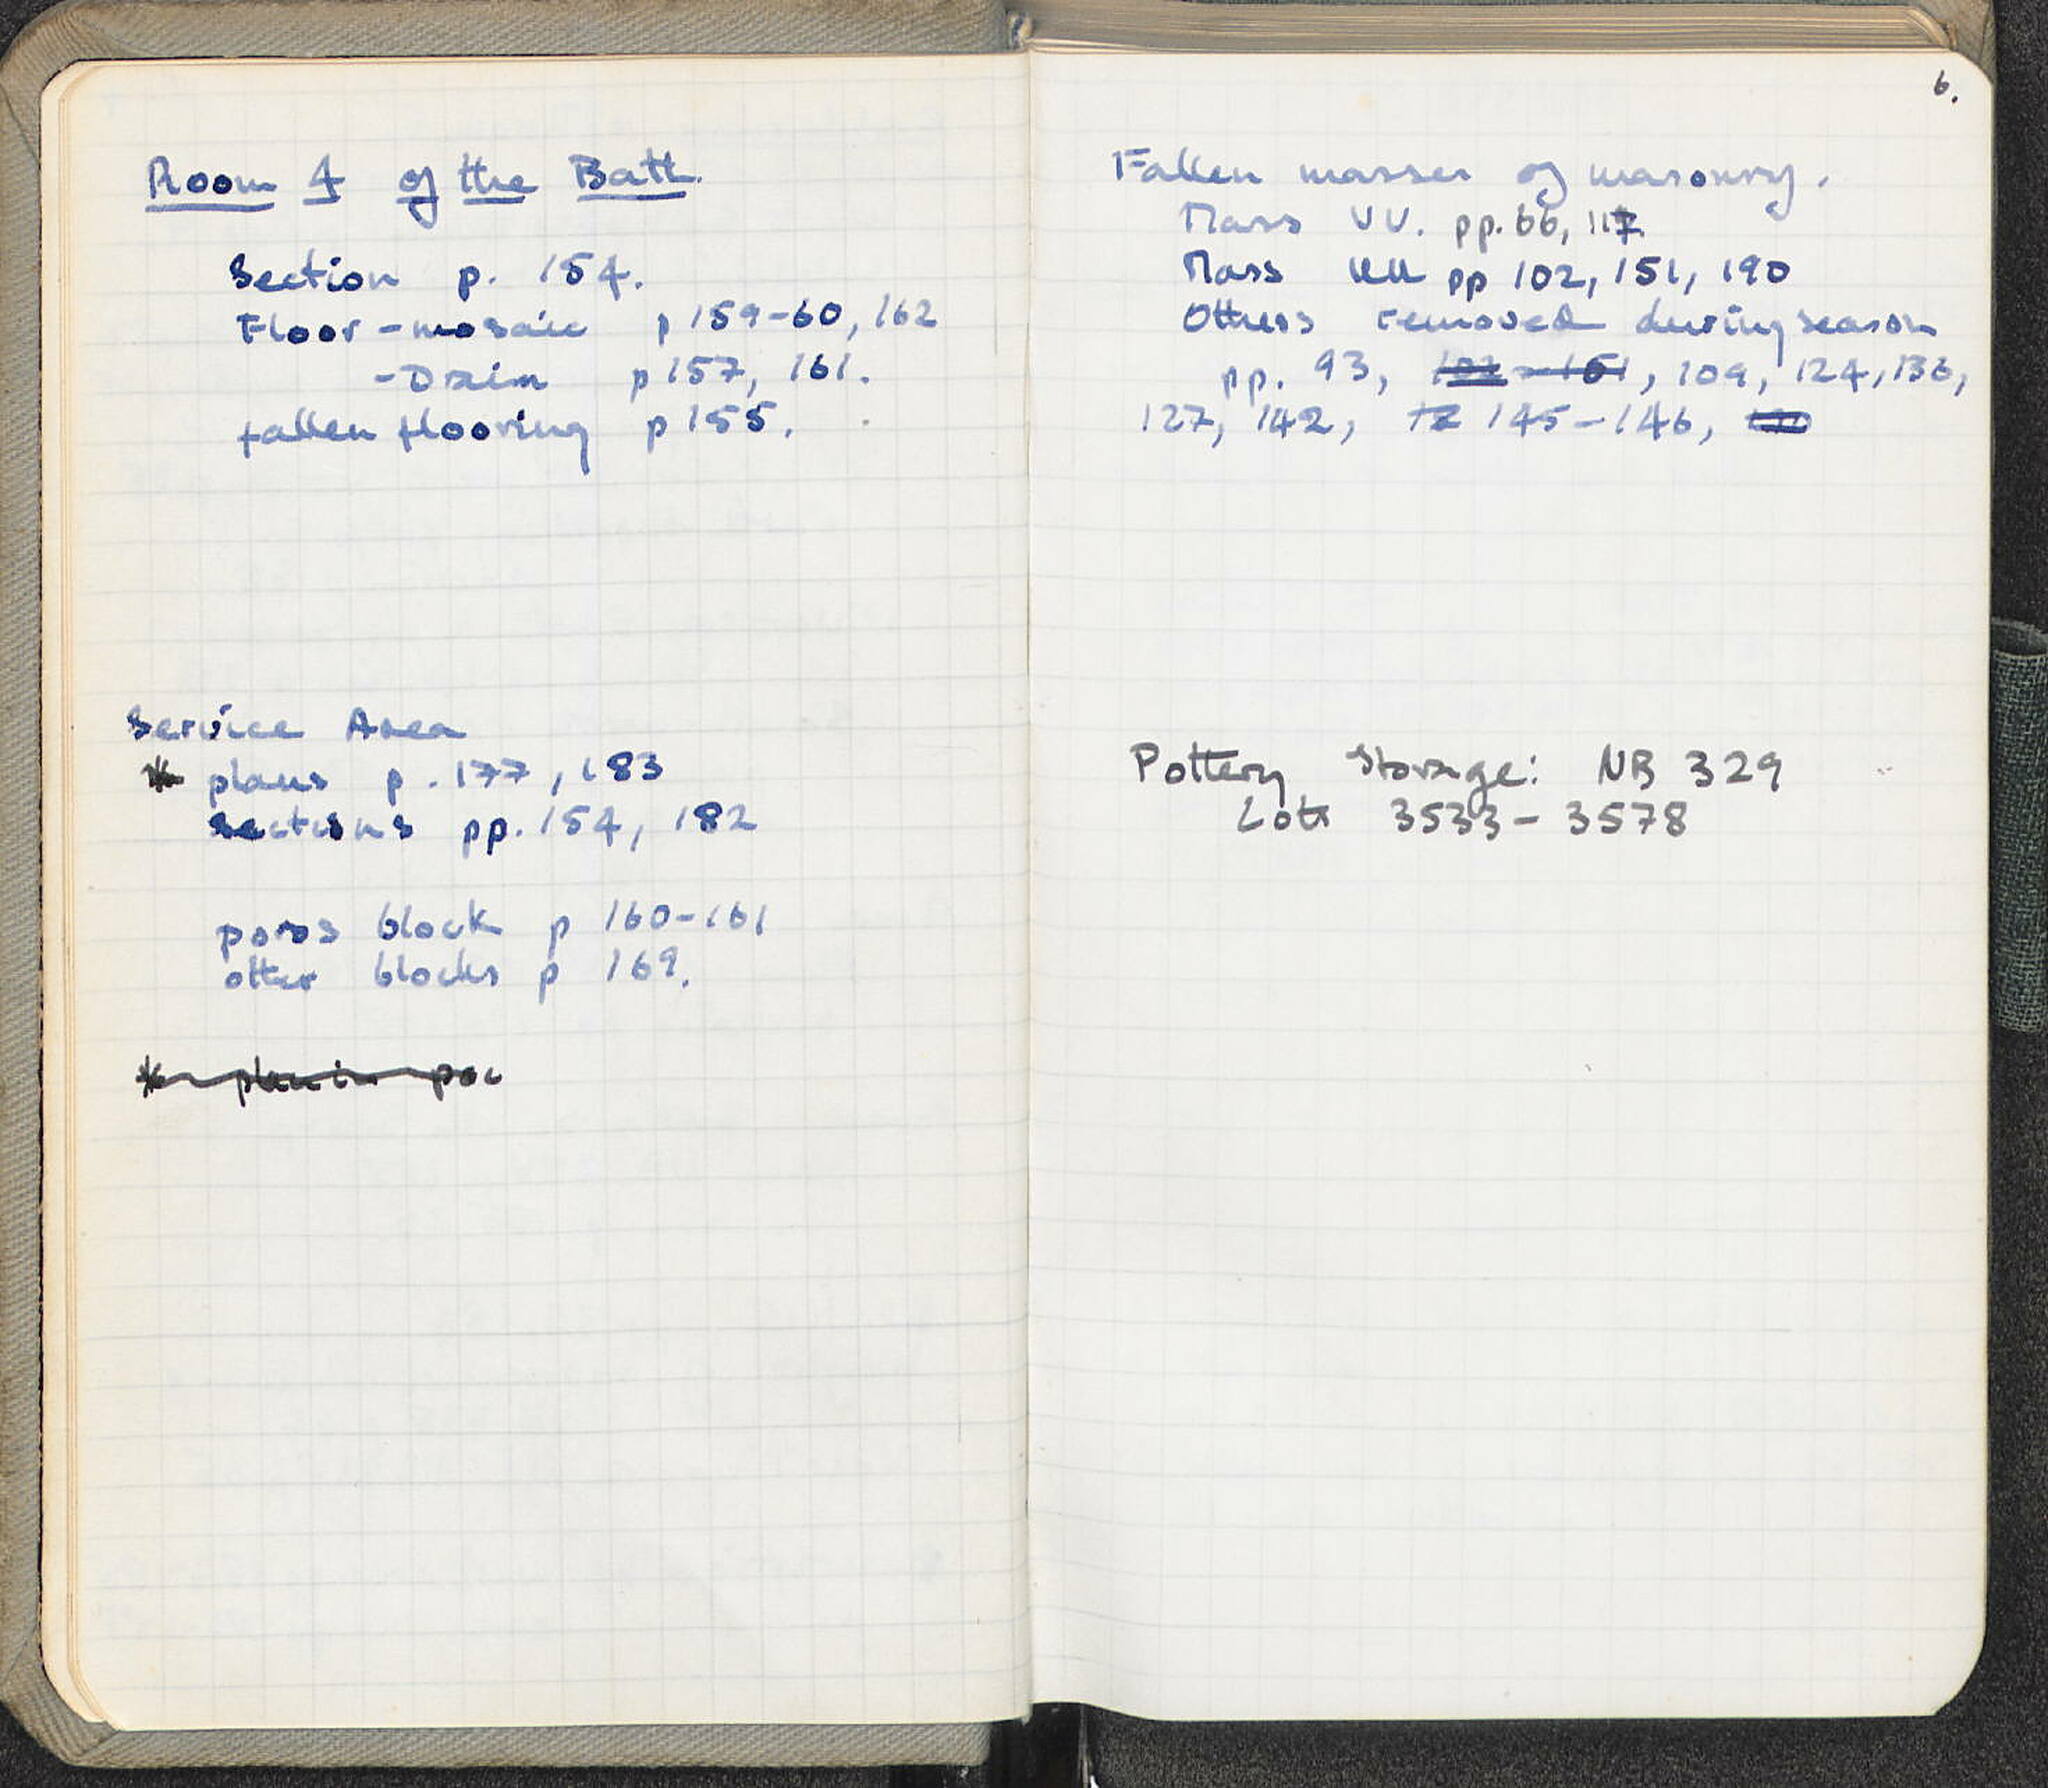 Room 4 of the Bath.
Section p. 154.
Floor - mosaic p 159-60, 162
- Drain p 157, 161.
fallen flooring p 155.
Service Area
* plans p. 177, 183
sections pp. 154, 182
poros block p 160-161
other blocks p 169.
* plan in poc
6.
Fallen masses of masonry.
Mass VV. pp. 66, 117
Mass UU pp 102, 151, 190
Others removed during season
pp. 93, 109, 124, 136,
127, 142, 145-146,
Pottery Storage: NB 329
Lots 3533-3578